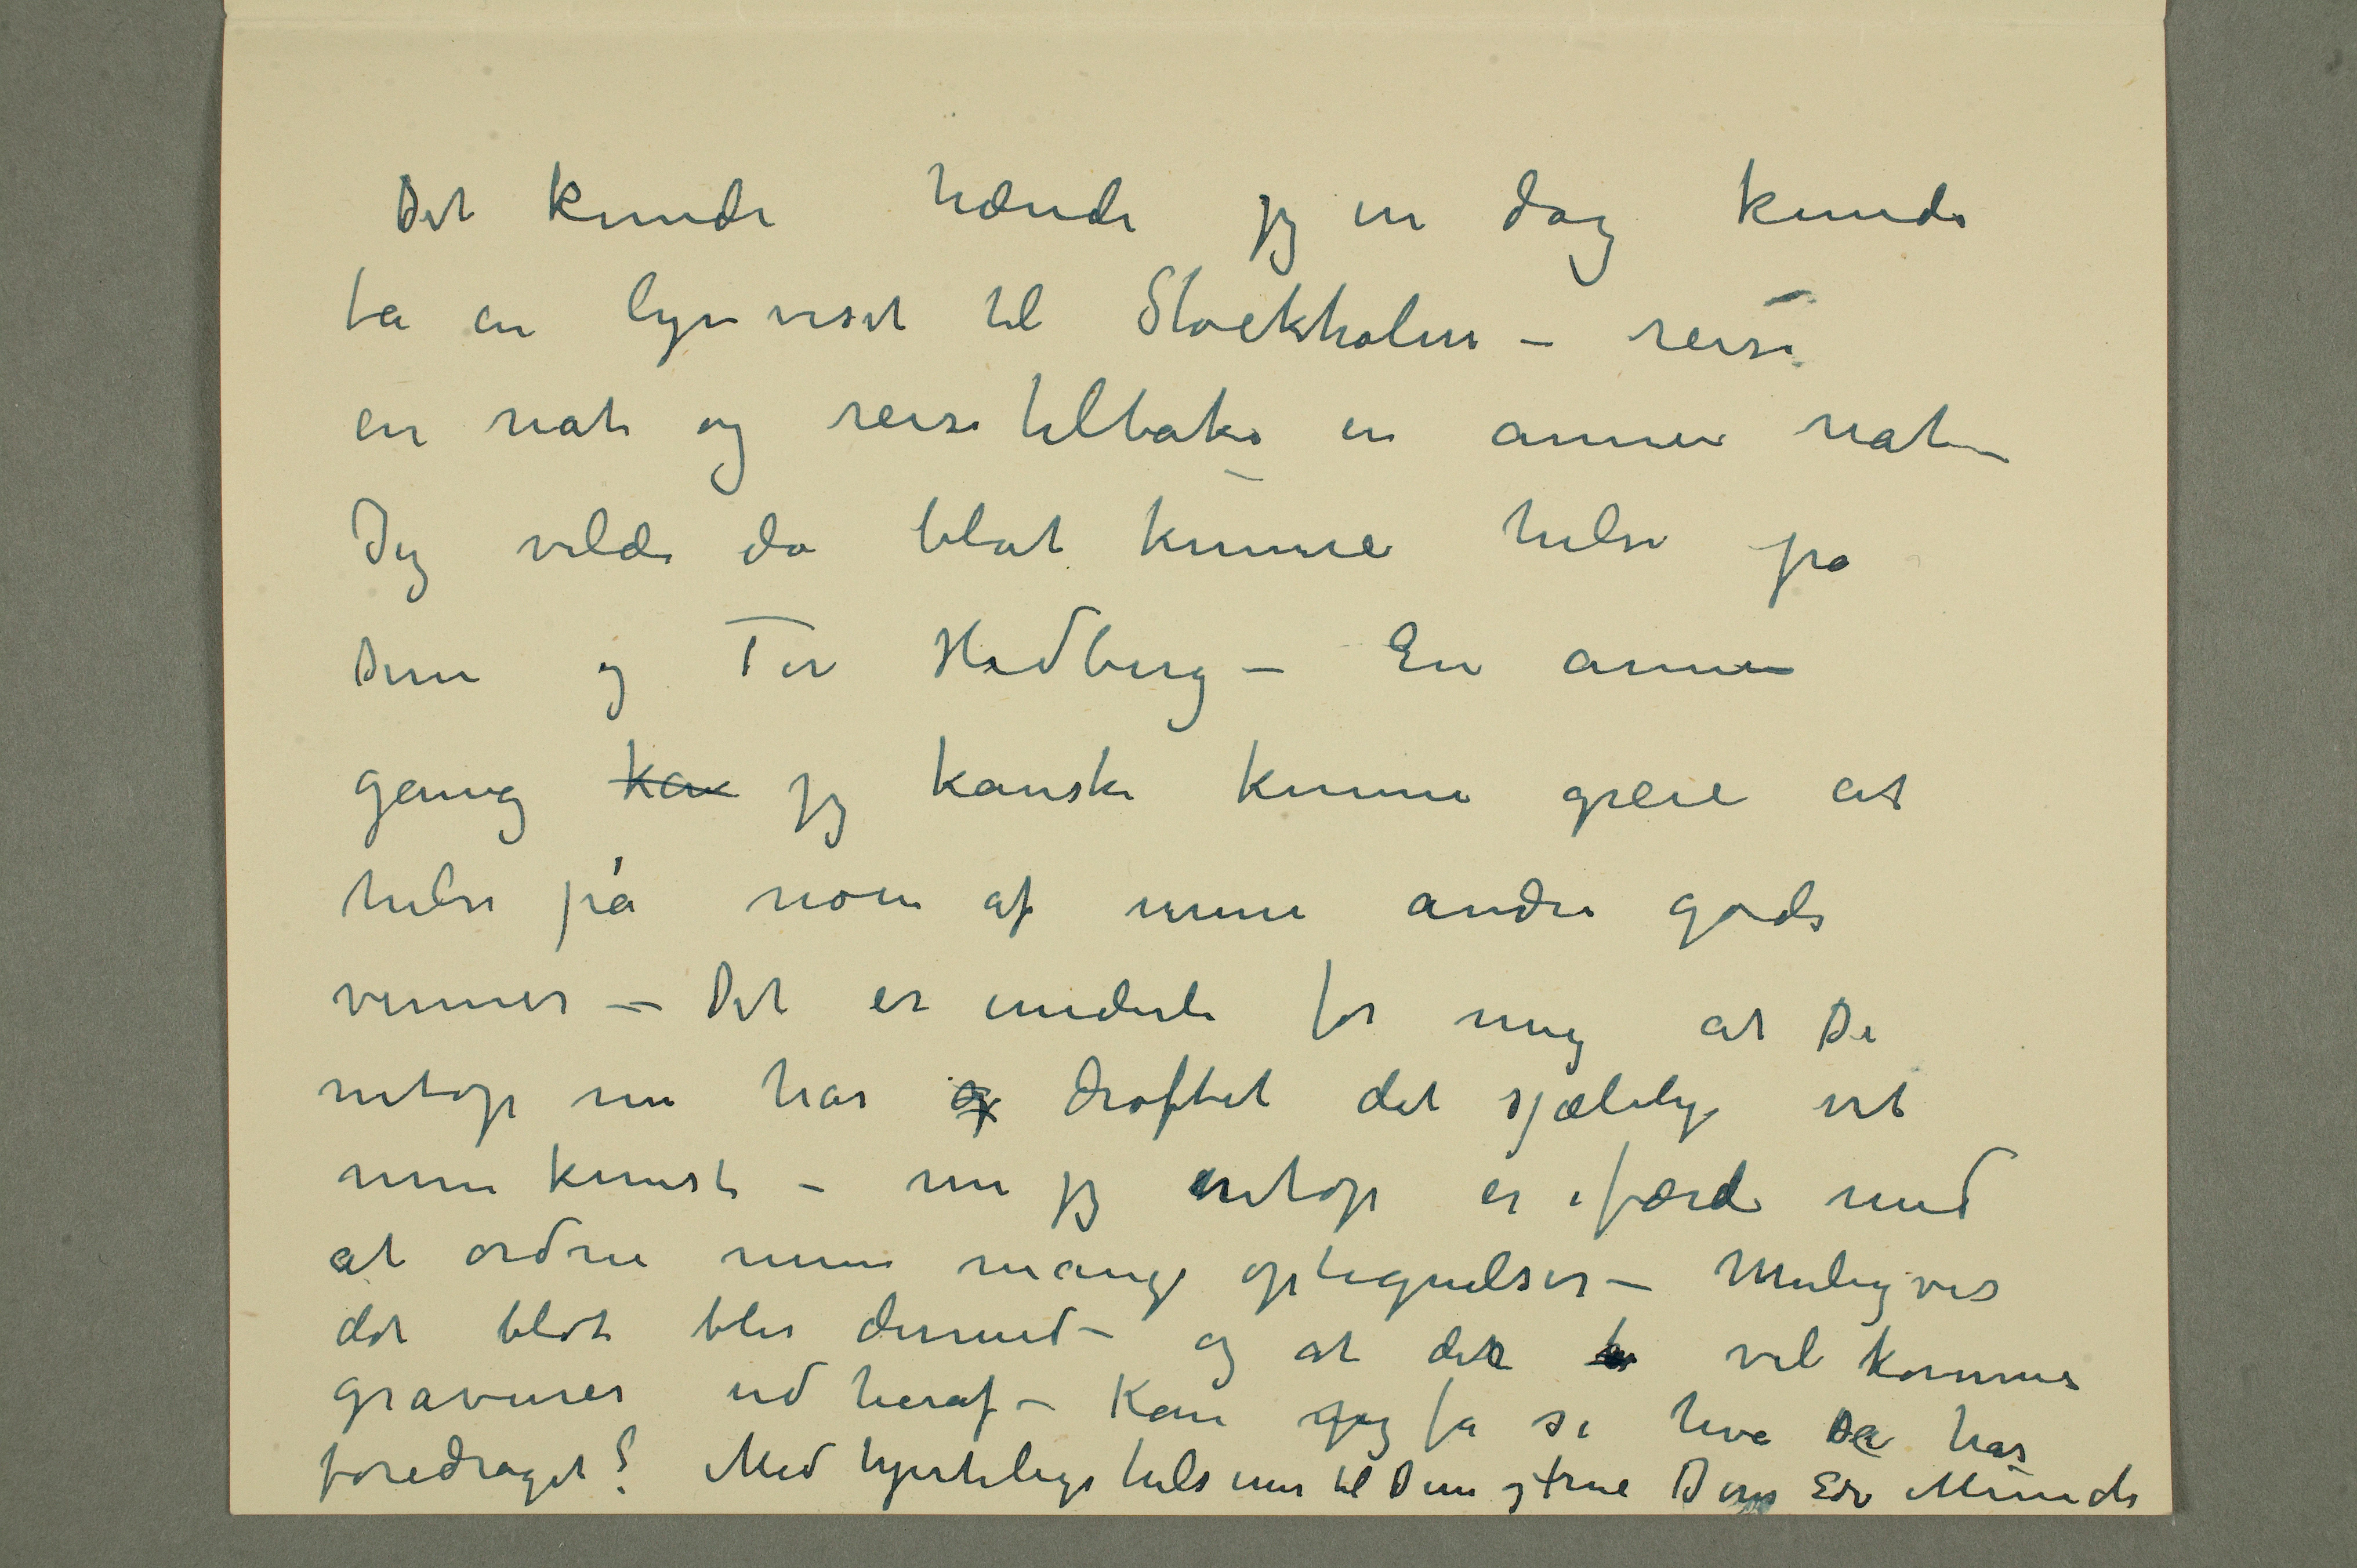 Det kunde hænde jeg en dag kunde
ta en lynvisit til Stockholm – reise
en nat og reise tilbake en annen nat –
Jeg vilde da blot kunne hilse på
Dem og Tor Hedberg – En annen
gang kan jeg kanske kunne greie at
hilse på noen af mine andre gode
venner – Det er underli for mig at De
netop nu har og drøftet det sjælelige ved
min kunst – nu jeg netop er ifærd med
at ordne mine mange optegnelser – Muligvis
det blot blir dermed – og at det vil komme
gravurer ud heraf – Kan jeg få se hva De har
foredraget? Med hjerteligs hilsener til Dem og frue Deres Edv Munch